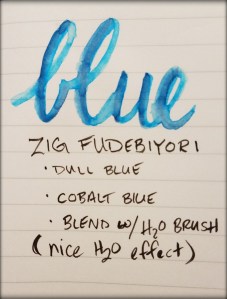 blue
ZIG FUDEBIYORI
· DULL BLUE
· COBALT BLUE
· BLEND W/ H₂O BRUSH
(nice H₂O effect)